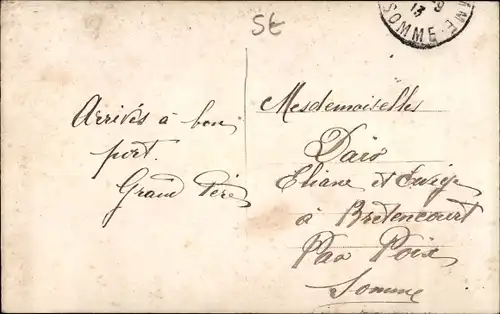 St
13 - 9
SOMME
Arrivés à bon
port.
Grand Père
Mesdemoiselles
Eliane et
à Bretencourt
Par Poix
Somme